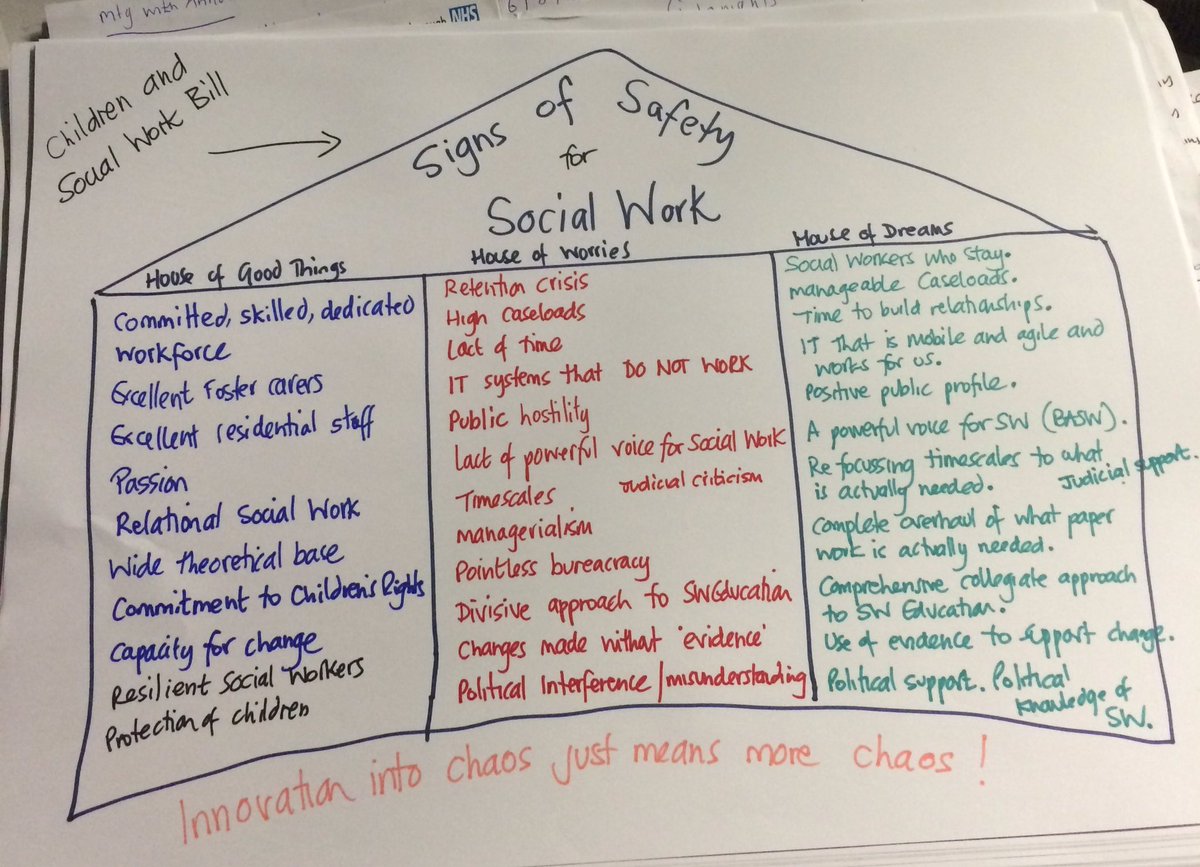 mtg with
NHS
Children and
Social Work Bill
Signs of Safety
for
Social Work
House of Good Things
Committed, skilled, dedicated
workforce
Excellent Foster carers
Excellent residential staff
Passion
Relational Social Work
Wide theoretical base
Commitment to Children's Rights
Capacity for change
Resilient Social Workers
Protection of children
House of Worries
Retention crisis
High Caseloads
Lack of time
IT systems that DO NOT WORK
Public hostility
Lack of powerful voice for Social Work
Timescales Judicial criticism
managerialism
Pointless bureacracy
Divisive approach to SW Education
Changes made without 'evidence'
Political Interference / misunderstanding
House of Dreams
Social Workers who stay.
manageable Caseloads.
Time to build relationships.
IT That is mobile and agile and
works for us.
Positive public profile.
A powerful voice for SW (BASW).
Re focussing timescales to what
is actually needed. Judicial support.
Complete overhaul of what paper
work is actually needed.
Comprehensive collegiate approach
to SW Education.
Use of evidence to support change.
Political support. Political
Knowledge of
SW.
Innovation into chaos just means more chaos!